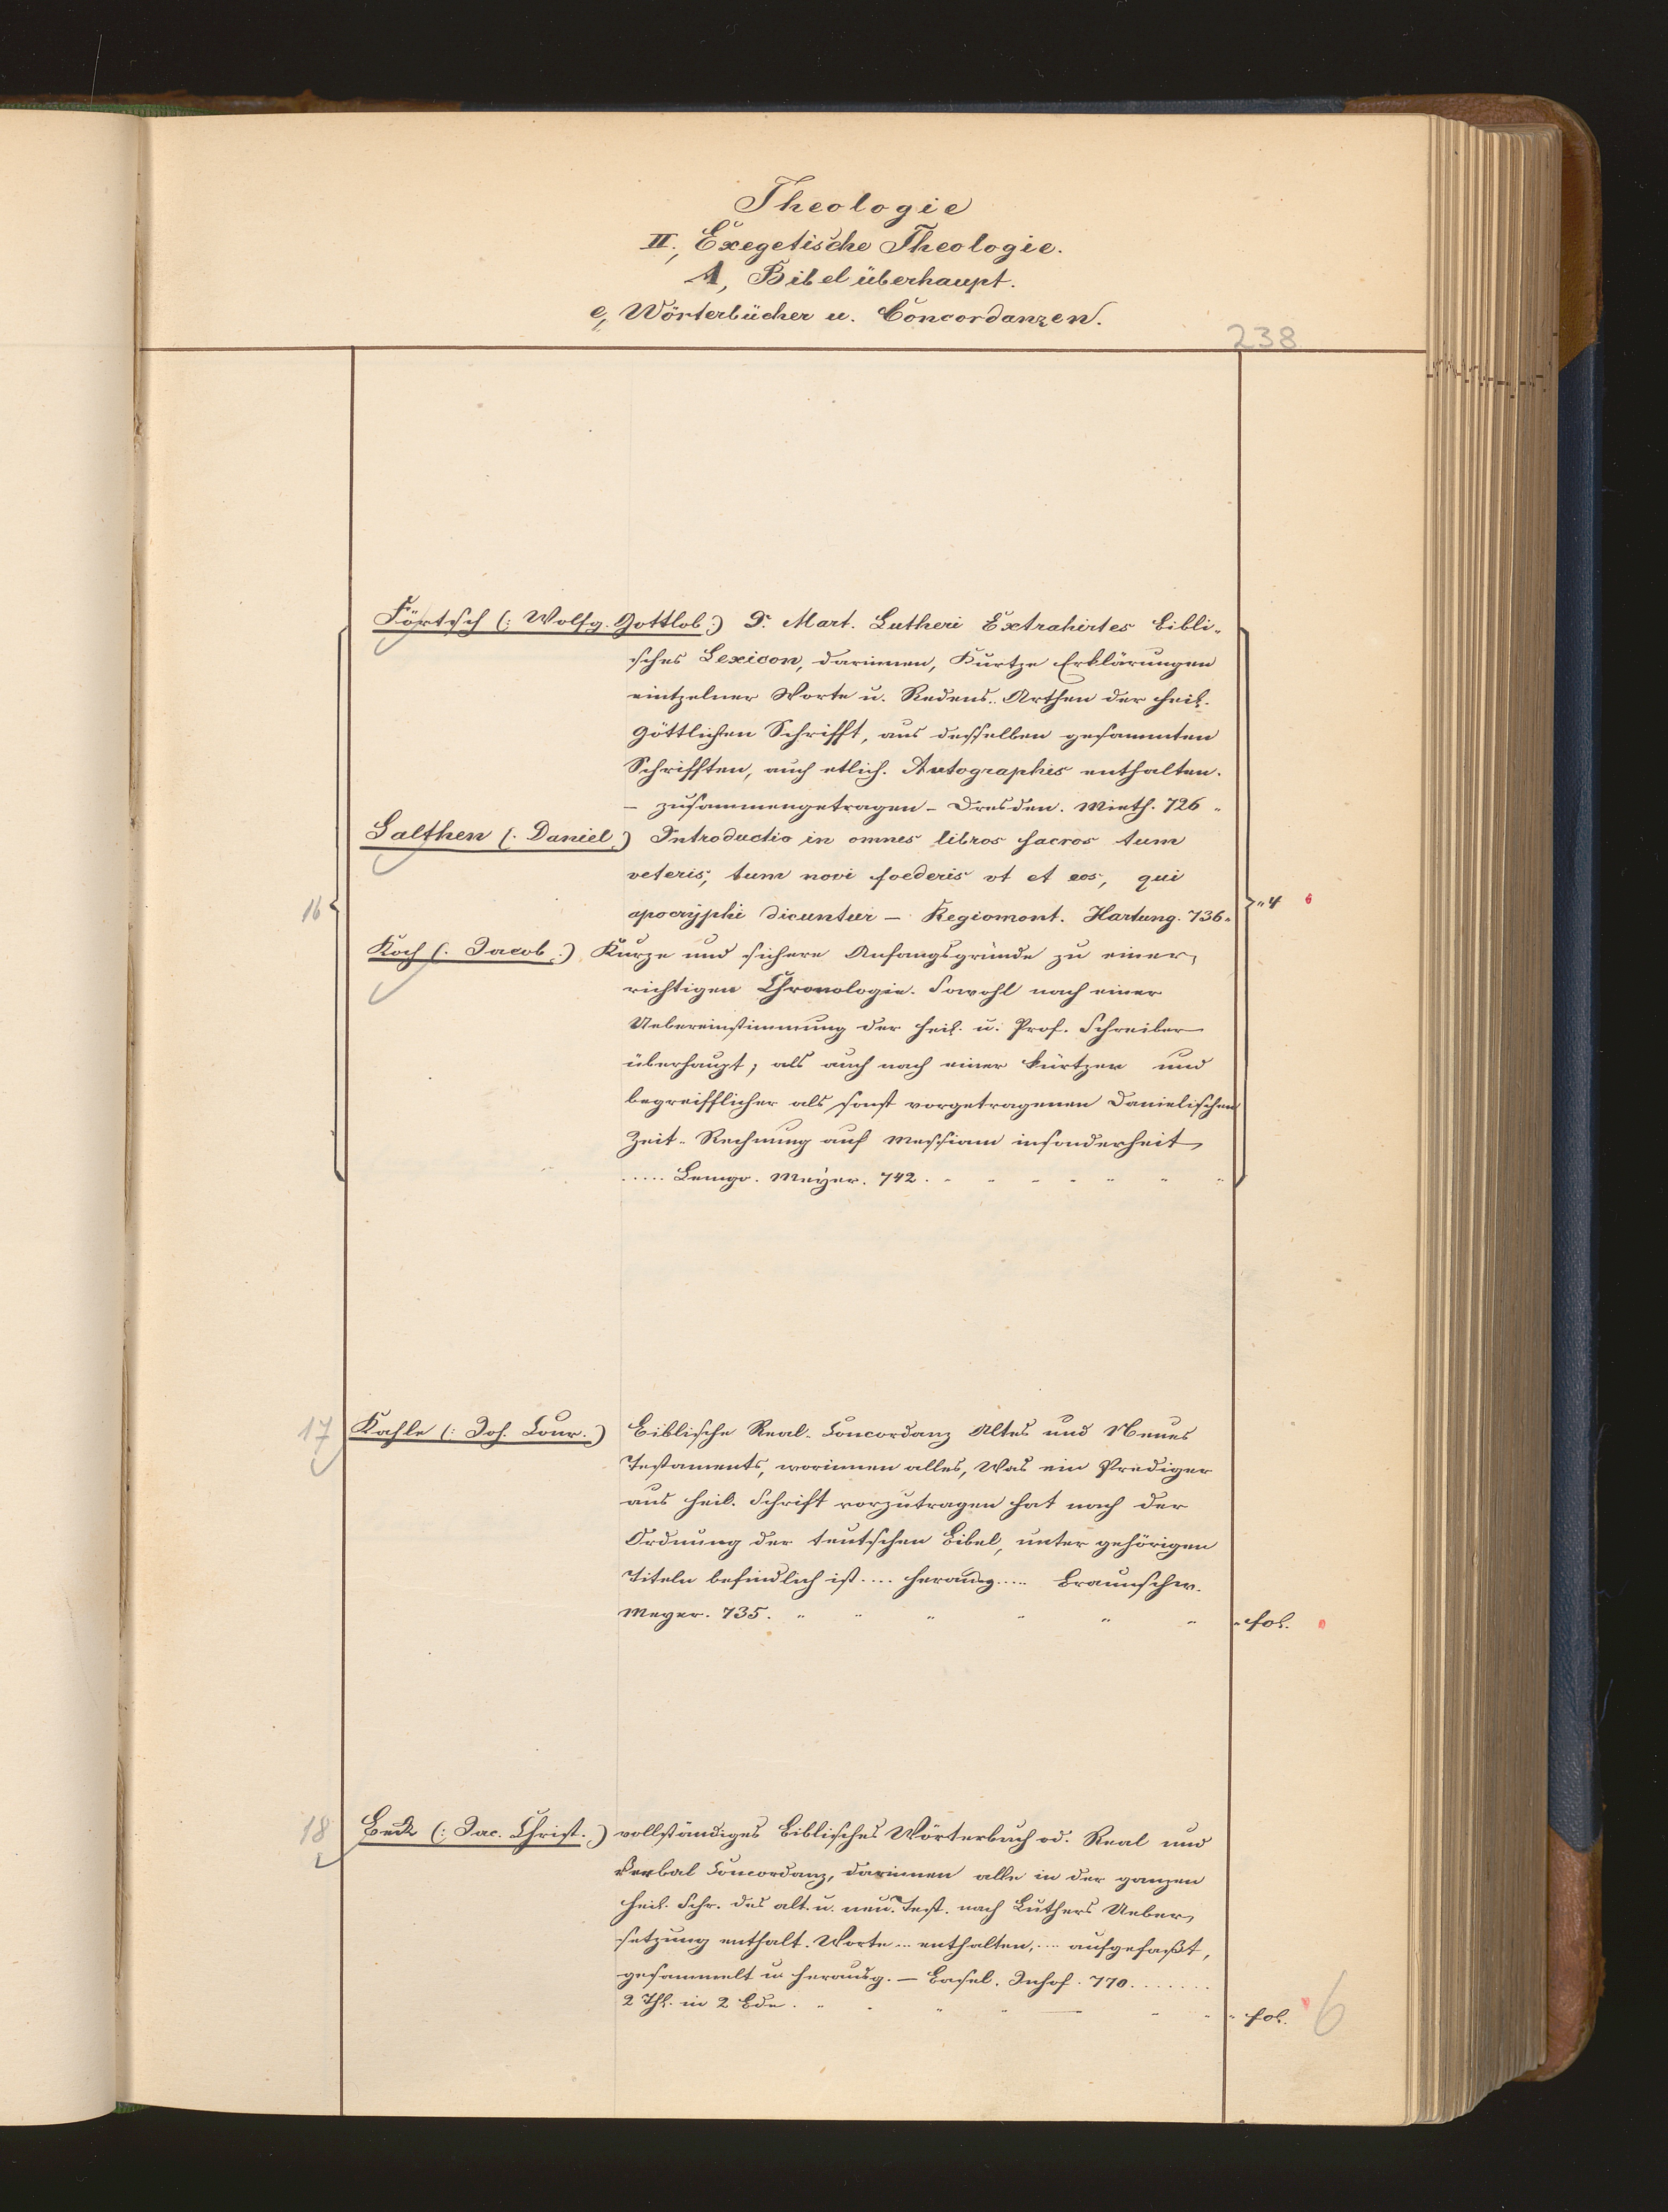 Theologie
II., Exegetische Theologie.
A, Bibel überhaupt.
e, Wörterbücher u. Concordanzen.
238
Förtsch (: Wolfg. Gottlob:) Dr. Mart. Lutheri Extrahirtes bibli-
sches Lexicon, darinnen, Kurtze Erklärungen
eintzelner Worte u. Redens-Arthen der heil.
Göttlichen Schrifft, aus desselben gesammten
Schrifften, auch etlich. Autographis enthalten.
— zusammengetragen — Dresden. Mieth. 726 "
Salthen (: Daniel:) Introductio in omnes libros sacros tum
veteris, tum novi foederis vt et eos, qui
16 apocryphi dicuntur — Regiomont. Hartung. 736. " 4 6
Koch (: Jacob:) Kurze und sichere Anfangsgründe zu einer,
richtigen Chronologie. Sowohl nach einer
Uebereinstimmung der heil. u. Prof. Schreiber
überhaupt; als auch nach einer kürtzer und
begreifflicher als sonst vorgetragenen Danielischen
Zeit-Rechnung auf Messiam insonderheit,
..... Lemgo. Meyer. 742.
17 Kahle (: Joh. Conr.) Biblische Real-Concordanz Altes und Neues
Testaments, worinnen alles, Was ein Prediger
aus heil. Schrift vorzutragen hat nach der
Ordnung der teutschen Bibel, unter gehörigen
Titeln befindlich ist .... herausg..... Braunschw.
Meyer. 735. " " " " " " " fol.
18 Beck (: Jac. Christ.) vollständiges Biblisches Wörterbuch od. Real und
Verbal Concordanz, darinnen alle in der ganzen
heil. Schr. des alt. u. neu. Test. nach Luthers Ueber,
setzung enthalt. Worte ... enthalten, .... aufgefaßt,
gesammelt u. herausg. — Basel. Imhof. 770.......
2 Thl. in 2 Bde. " " " " " " fol. 6